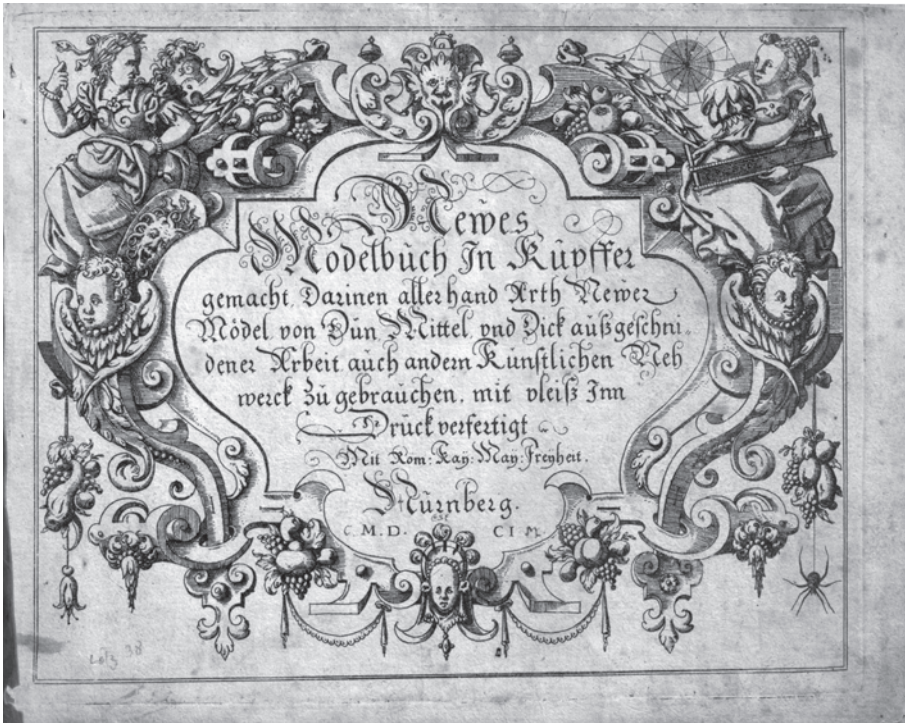 Newes
Modelbüch In Küpffer
gemacht, Darinen allerhand Arth Newer
Mödel von Dün Mittel vnd Dick außgeschni=
dener Arbeit auch andern Künstlichen Neh
werck zu gebrauchen. mit vleiß Inn
Drück verfertigt
Mit Rom: Kay: May: Freyheit.
Nürnberg.
C. M. D. CI M.
Lotz 38